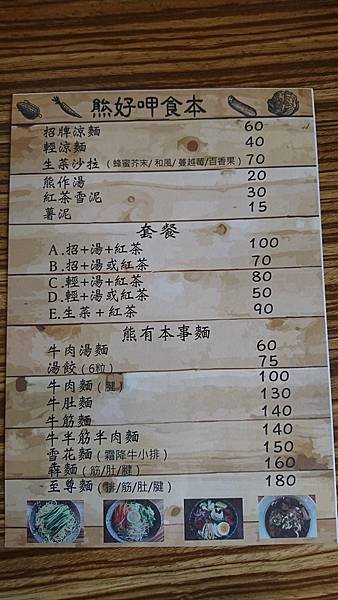 熊好呷食本
招牌涼麵 60
輕涼麵 40
生菜沙拉（蜂蜜芥末/和風/蔓越莓/百香果） 70
熊作湯 20
紅茶雪泥 30
薯泥 15
套餐
A.招+湯+紅茶 100
B.招+湯或紅茶 70
C.輕+湯+紅茶 80
D.輕+湯或紅茶 50
E.生菜+紅茶 90
熊有本事麵
牛肉湯麵 60
湯餃（6粒） 75
牛肉麵（腱） 100
牛肚麵 130
牛筋麵 140
牛半筋半肉麵 140
雪花麵（霜降牛小排） 150
犇麵（筋/肚/腱） 160
至尊麵（排/筋/肚/腱） 180